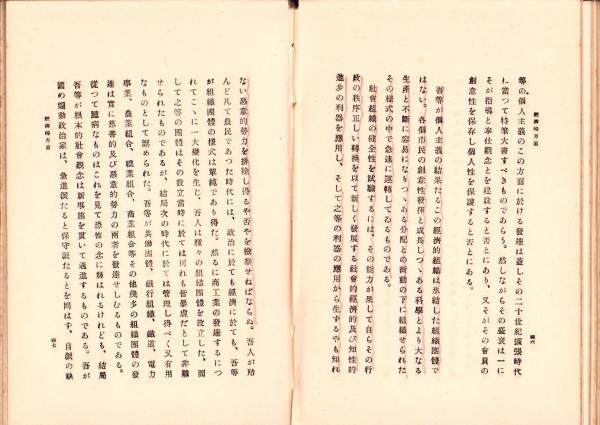 經濟的方面
四六
等の個人主義のこの方面に於ける發達は蓋しその二十世紀擴張時代
に當つて特筆大書すべきものであらう。然しながらその盛衰は一に
そが指導と奉仕觀念とを建設すると否とにあり、又そがその會員の
創意性を保存し個人性を保護すると否とにある。
吾等が個人主義の結果たるこの經濟的組織は氷結した組織團體で
はない。各個市民の創意性發揮と成長しつゝある科學とより大なる
生產と不斷に容易になりつゝある分配との衝動の下に組織せられた
その樣式の中で急速に運轉してゐるものである。
社會組織の健全性を試驗するには、その能力が果して自らその行
政の秩序正しい轉換を以て新しく發展する社會的經濟的及び知性的
進步の利器を應用し、そして之等の利器の應用から生ずるやも知れ
經濟的方面
四七
ない惡意的勢力を排除し得るや否やを檢察せねばならぬ。吾人が殆
んど凡て農民であつた時代には、政治に於ても經濟に於ても、吾等
が組織團體の樣式は單純であり得た。然るに商工業の發達するにつ
れてこゝに一大變化を生じ、吾人は種々の組織團體を設立した、而
して之等の團體はその設立當時に於ては何れも皆暴虐だとして非難
せられたものであるが、結局次の時代に於ては管理し得べく又有用
なものとして認められた。吾等が共働團體、銀行組織、鐵道、電力
事業、農業組合、職業組合、商業組合等その他幾多の組織團體の發
達は實に慈善的及び惡意的勢力の兩者を發達せしむるものである。
從つて臆病なものはこれを見て恐怖の念に襲はれるけれども、結局
吾等が根本的社會觀念は新事態を貫いて通進するものである。吾が
國め煽動政治家は、急進派たると保守派たるとを問はず、自派の缺